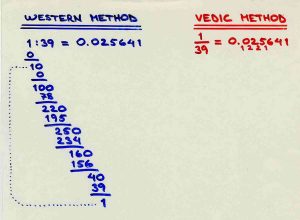 WESTERN METHOD
1:39 = 0.025641
0
10
0
100
78
220
195
250
234
160
156
40
39
1
VEDIC METHOD
1/39 = 0.025641
1221